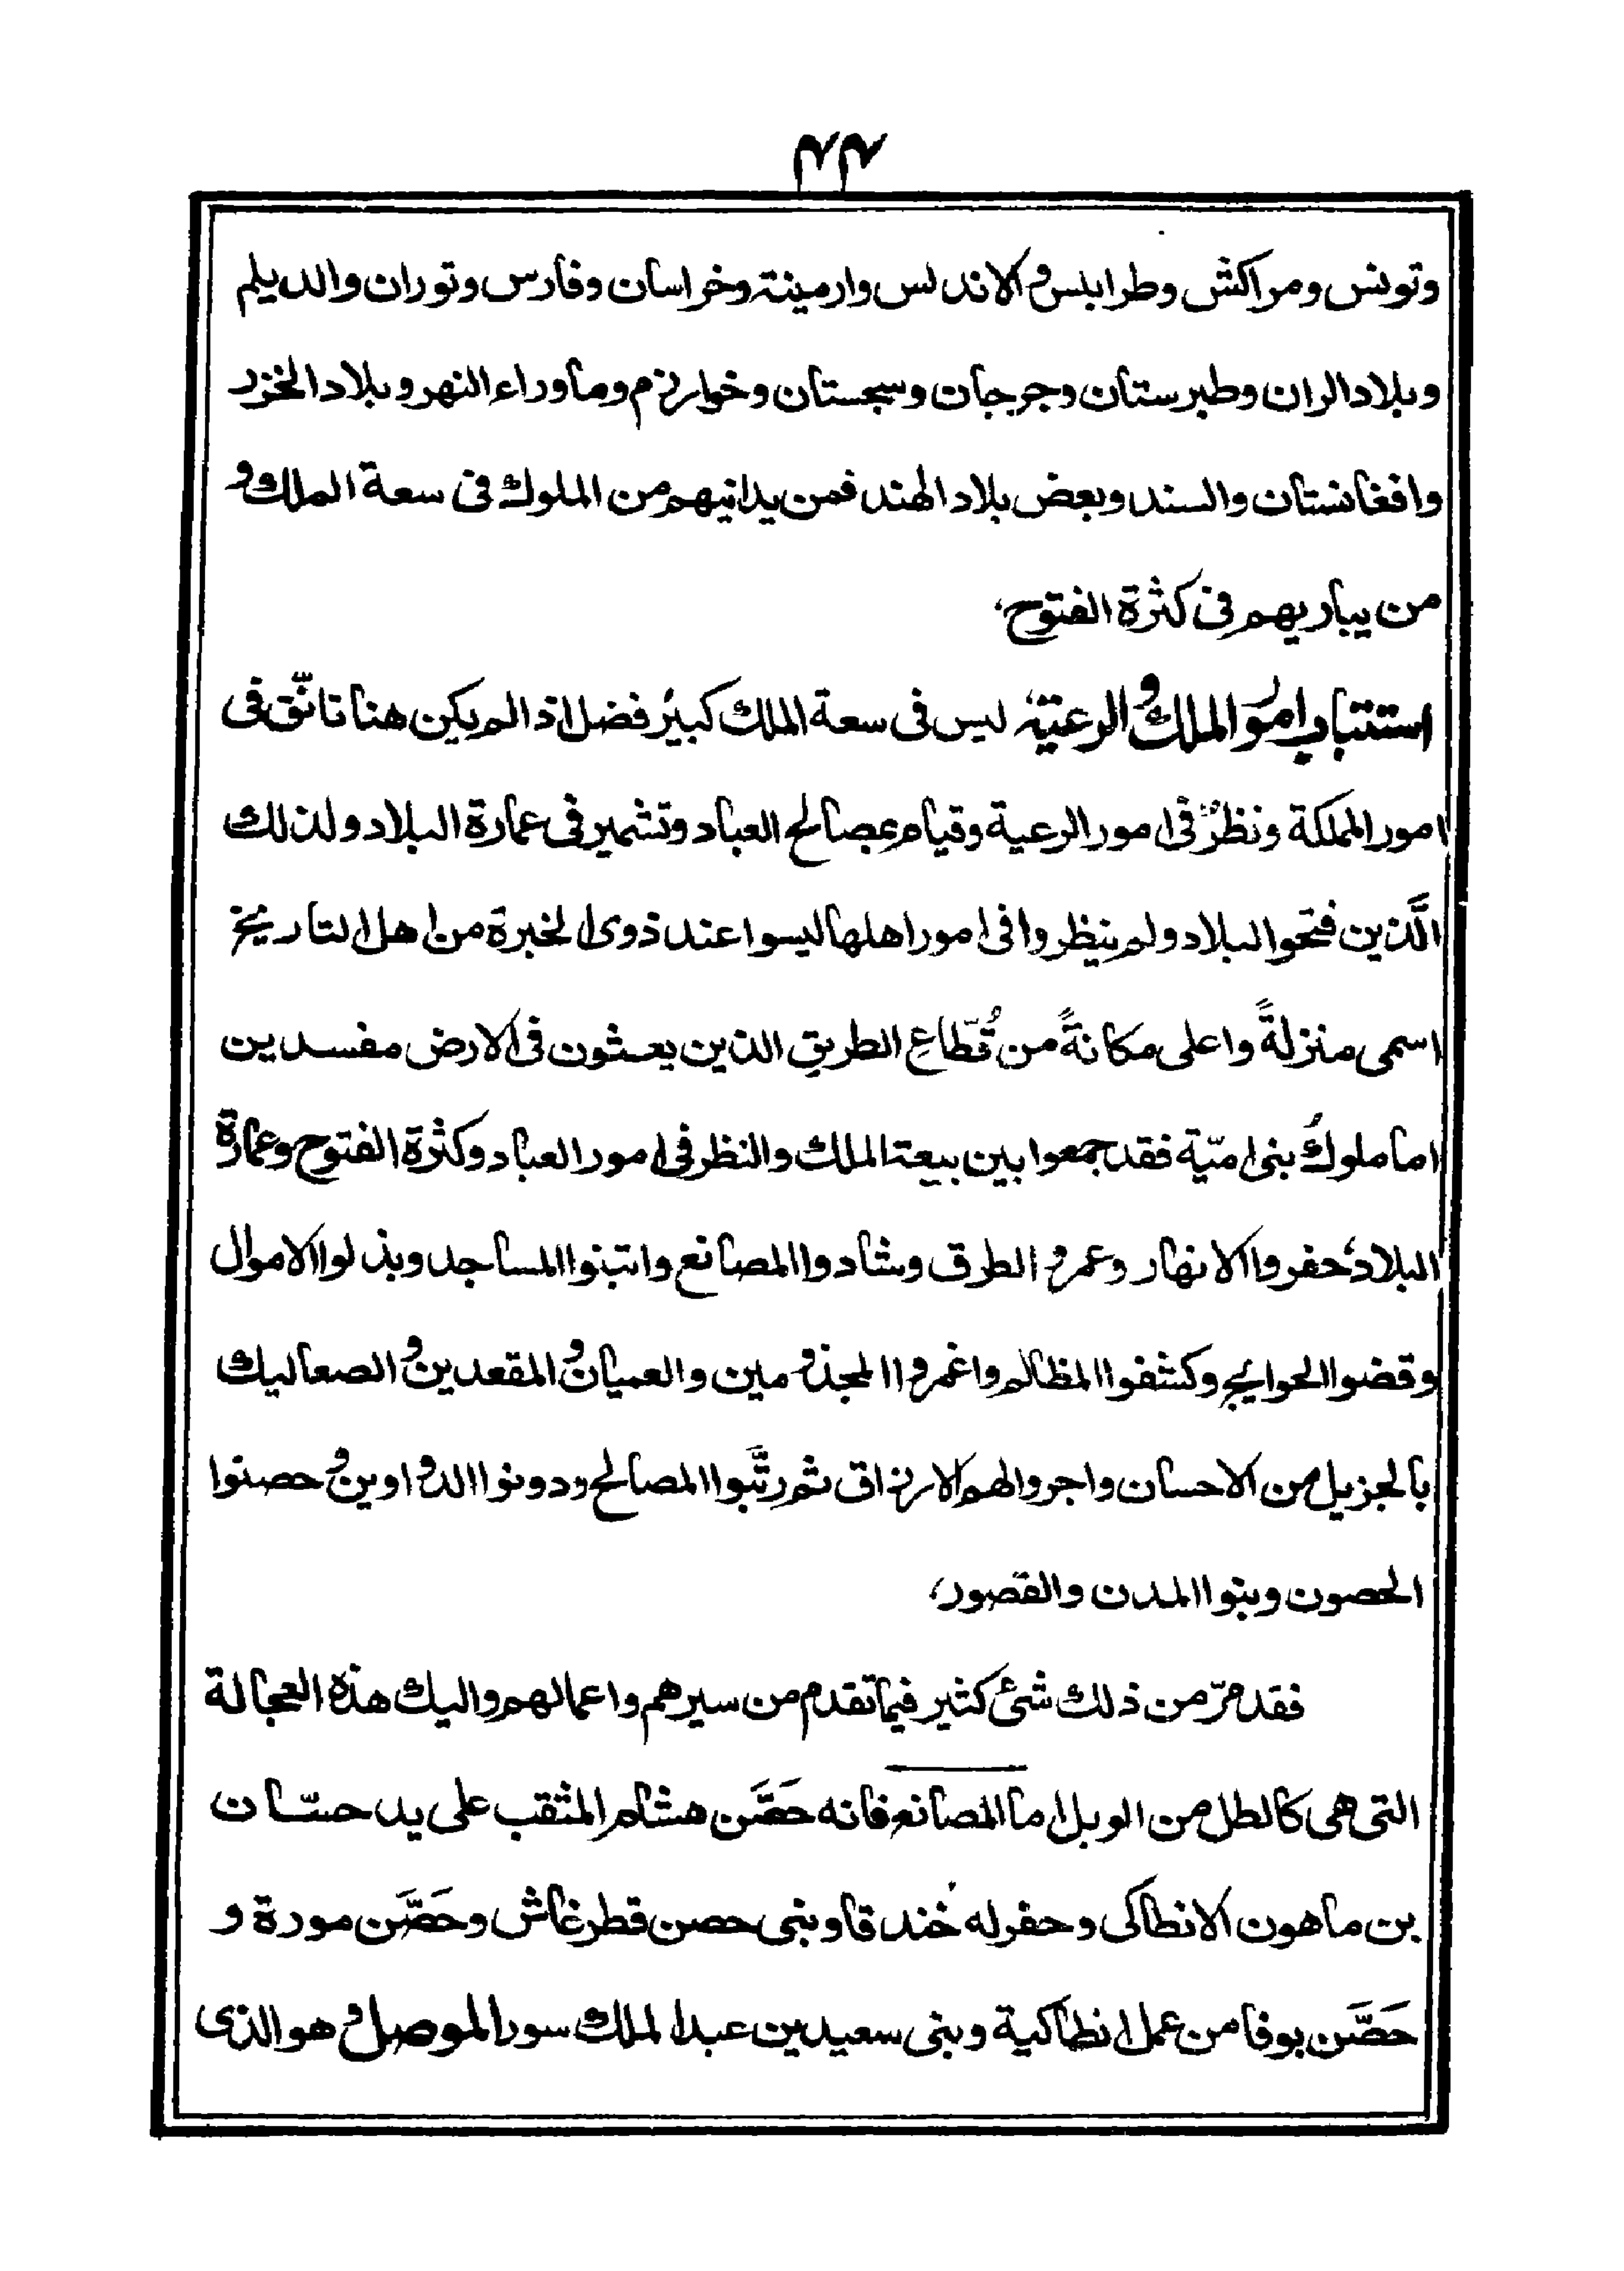 ٢٢
وتونس ومراكش وطرابلس والاندلس وارمينة وخراسان وفارس وتوران والديلم
وبلاد الران وطبرستان وجرجان وسجستان وخوارزم وماوراء النهر وبلاد الخزر
وافغانستان والسند وبعض بلاد الهند فمن يدانيهم من الملوك فى سعة الملك و
من يباريهم فى كثرة الفتوح،
استتباب امور الملك والرعية، ليس فى سعة الملك كبيرُ فضل اذا لم يكن هنا تانّق فى
امور المملكة ونظرٌ فى امور الرعية وقيام بمصالح العباد وتشمير فى عمارة البلاد ولذلك
الَّذين فتحوا البلاد ولم ينظروا فى امور اهلها ليسوا عند ذوى الخبرة من اهل التاريخ
اسمى منزلةً واعلى مكانةً من قُطّاعِ الطريق الذين يعثون فى الارض مفسدين
اما ملوكُ بنى اميّة فقد جمعوا بين بيعة الملك والنظر فى امور العباد وكثرة الفتوح وعمارة
البلاد، حفروا الانهار وعمروا الطرق وشادوا المصانع وابتنوا المساجد وبذلوا الاموال
وقضوا الحوايج وكشفوا المظالم واغمروا المجذومين والعميان والمقعدين والصعاليك
بالجزيل من الاحسان واجروا لهم الارزاق ثم رتَّبوا المصالح ودونوا الدواوين وحصنوا
الحصون وبنوا المدن والقصور،
فقد مرّ من ذلك شئ كثير فيما تقدم من سيرهم واعمالهم واليك هذه العجالة
التى هى كالطل من الوبل اما المصانع فانه حَصَّن هشام المثقب على يد حسّان
بن ماهون الانطاكى وحفر له خندقا وبنى حصن قطرغاش وحَصَّن مورة و
حَصَّن بوقا من عمل انطاكية وبنى سعيد بن عبد الملك سور الموصل وهو الذى